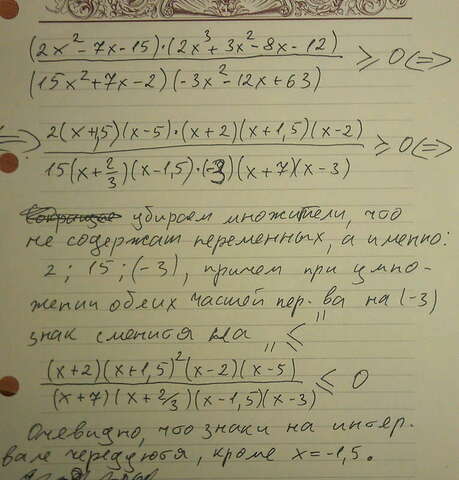 (2x² - 7x - 15)·(2x³ + 3x² - 8x - 12)
(15x² + 7x - 2)(-3x² - 12x + 63) ≥ 0 <=>
=> 2(x+1,5)(x-5)·(x+2)(x+1,5)(x-2)
15(x+2/3)(x-1,5)·(-3)(x+7)(x-3) ≥ 0 <=>
убираем множители, что
не содержат переменных, а именно:
2; 15; (-3), причем при умно-
жении обеих частей нер-ва на (-3)
знак сменится на „≤"
(x+2)(x+1,5)²(x-2)(x-5)
(x+7)(x+2/3)(x-1,5)(x-3) ≤ 0
Очевидно, что знаки на интер-
вале чередуются, кроме x=-1,5.